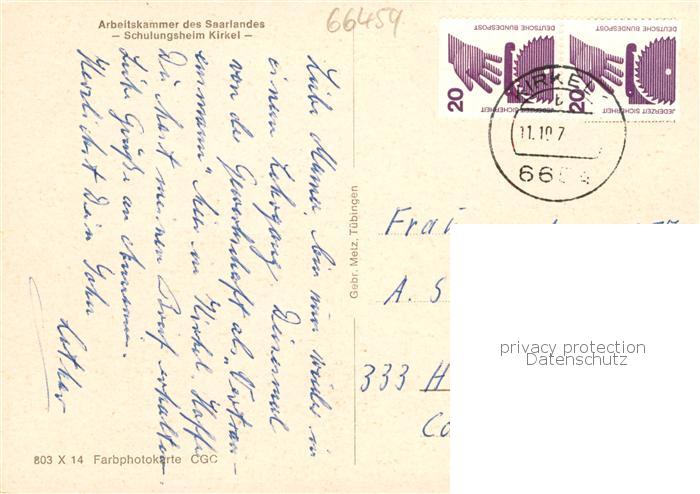 Arbeitskammer des Saarlandes
– Schulungsheim Kirkel –
66459
Liebe Mama, bin mal wieder in
einem Lehrgang. Diesmal
von der Gewerkschaft als "Vertrau-
ensmann" bin in Kirkel. Hoffe
Du hast meinen Brief erhalten.
Liebe Grüße an
Herzlichst Dein Sohn
Lothar
803 X 14 Farbphotokarte CGC
Gebr. Metz, Tübingen
DEUTSCHE BUNDESPOST
20
JEDERZEIT SICHERHEIT
DEUTSCHE BUNDESPOST
20
JEDERZEIT SICHERHEIT
KIRKEL
b
11.10.7
66
Frau
A. S
333 H
privacy protection
Datenschutz